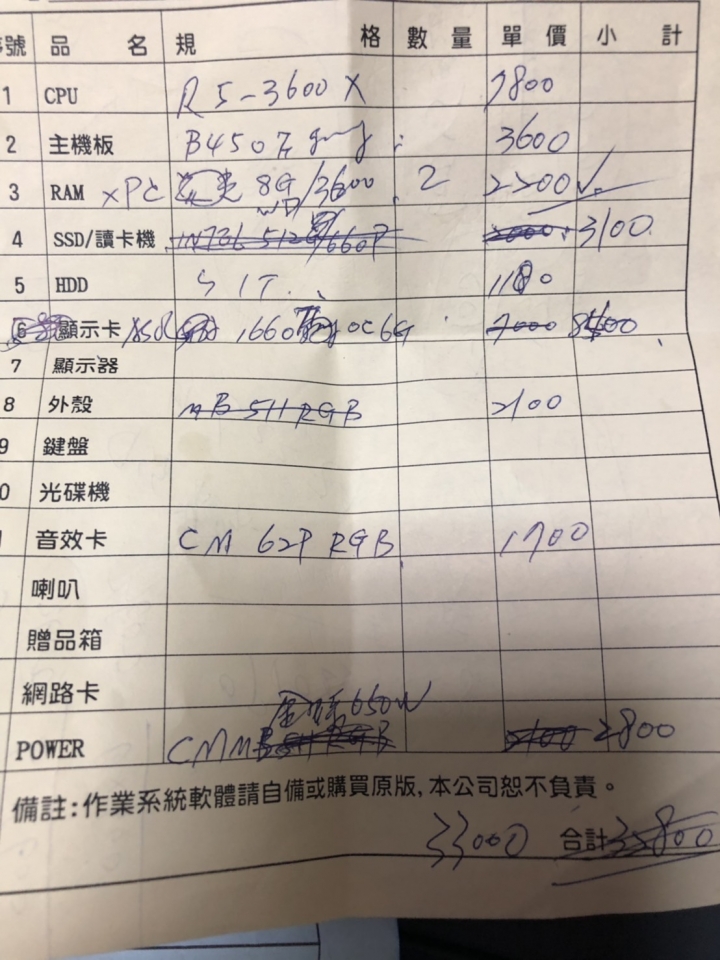 號 品 名 規 格 數 量 單 價 小 計
1 CPU R5-3600X 7800
2 主機板 B450 3600
3 RAM XPG 8G/3600 2 2200
4 SSD/讀卡機 INTEL 512G/660P WD 3100
5 HDD S 1T 1180
6 顯示卡 1660 OC 6G 7000
7 顯示器
8 外殼 MB511 RGB 2100
9 鍵盤
0 光碟機
音效卡 CM 62P RGB 1700
喇叭
贈品箱
網路卡
650W
POWER CM MB511 RGB 2100 2800
備註:作業系統軟體請自備或購買原版,本公司恕不負責。
33000 合計 32800